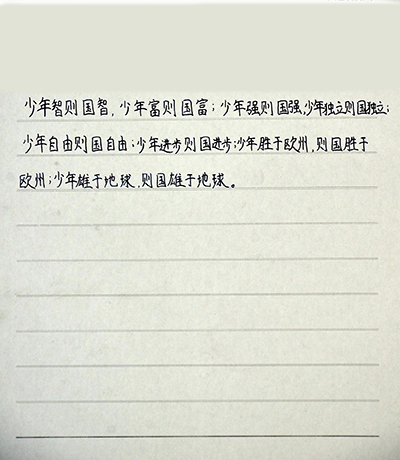 少年智则国智，少年富则国富；少年强则国强，少年独立则国独立；
少年自由则国自由；少年进步则国进步；少年胜于欧州，则国胜于
欧州；少年雄于地球，则国雄于地球。